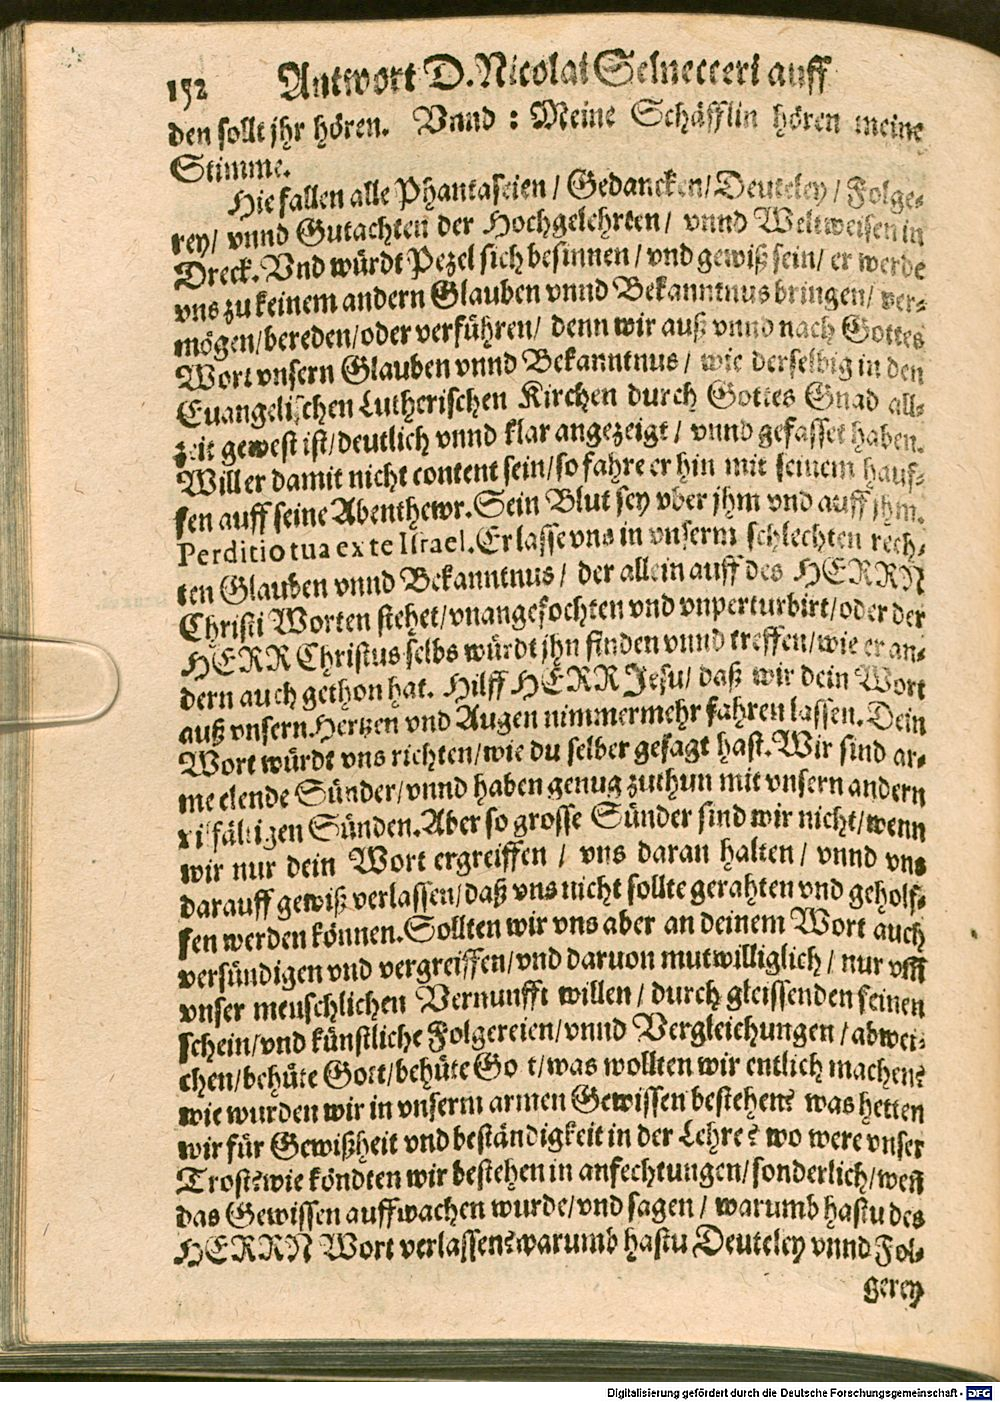 152 Antwort D. Nicolai Selnecceri auff
den sollt jhr hören. Vnnd : Meine Schäfflin hören meine
Stimme.
Hie fallen alle Phantaseien / Gedancken / Deuteley / Folge-
rey / vnnd Gutachten der Hochgelehrten / vnnd Weltweisen in
Dreck. Vnd würdt Pezel sich besinnen / vnd gewiß sein / er werde
vns zu keinem andern Glauben vnnd Bekanntnus bringen / ver-
mögen / bereden / oder verführen / denn wir auß vnnd nach Gottes
Wort vnsern Glauben vnnd Bekanntnus / wie derselbig in den
Euangelischen Lutherischen Kirchen durch Gottes Gnad all-
zeit gewest ist / deutlich vnnd klar angezeigt / vnnd gefasset haben.
Will er damit nicht content sein / so fahre er hin mit seinem hauf-
fen auff seine Abenthewr. Sein Blut sey vber jhm vnd auff jhm.
Perditio tua ex te Israel. Er lasse vns in vnserm schlechten rech-
ten Glauben vnnd Bekanntnus / der allein auff des HERRN
Christi Worten stehet / vnangefochten vnd vnperturbirt / oder der
HERR Christus selbs würdt jhn finden vnnd treffen / wie er an-
dern auch gethon hat. Hilff HERR Jesu / daß wir dein Wort
auß vnsern Hertzen vnd Augen nimmermehr fahren lassen. Dein
Wort würdt vns richten / wie du selber gesagt hast. Wir sind ar-
me elende Sünder / vnnd haben genug zuthun mit vnsern andern
vilfältigen Sünden. Aber so grosse Sünder sind wir nicht / wenn
wir nur dein Wort ergreiffen / vns daran halten / vnnd vns
darauff gewiß verlassen / daß vns nicht sollte gerahten vnd geholf-
fen werden können. Sollten wir vns aber an deinem Wort auch
versündigen vnd vergreiffen / vnd daruon mutwilliglich / nur vm̃
vnser menschlichen Vernunfft willen / durch gleissenden feinen
schein / vnd künstliche Folgereien / vnnd Vergleichungen / abwei-
chen / behüte Gott / behüte Gott / was wollten wir entlich machen?
wie wurden wir in vnserm armen Gewissen bestehen? was hetten
wir für Gewißheit vnd beständigkeit in der Lehre? wo were vnser
Trost? wie köndten wir bestehen in anfechtungen / sonderlich / weñ
das Gewissen auffwachen wurde / vnd sagen / warumb hastu des
HERRN Wort verlassen? warumb hastu Deuteley vnnd Fol-
gerey
Digitalisierung gefördert durch die Deutsche Forschungsgemeinschaft - DFG